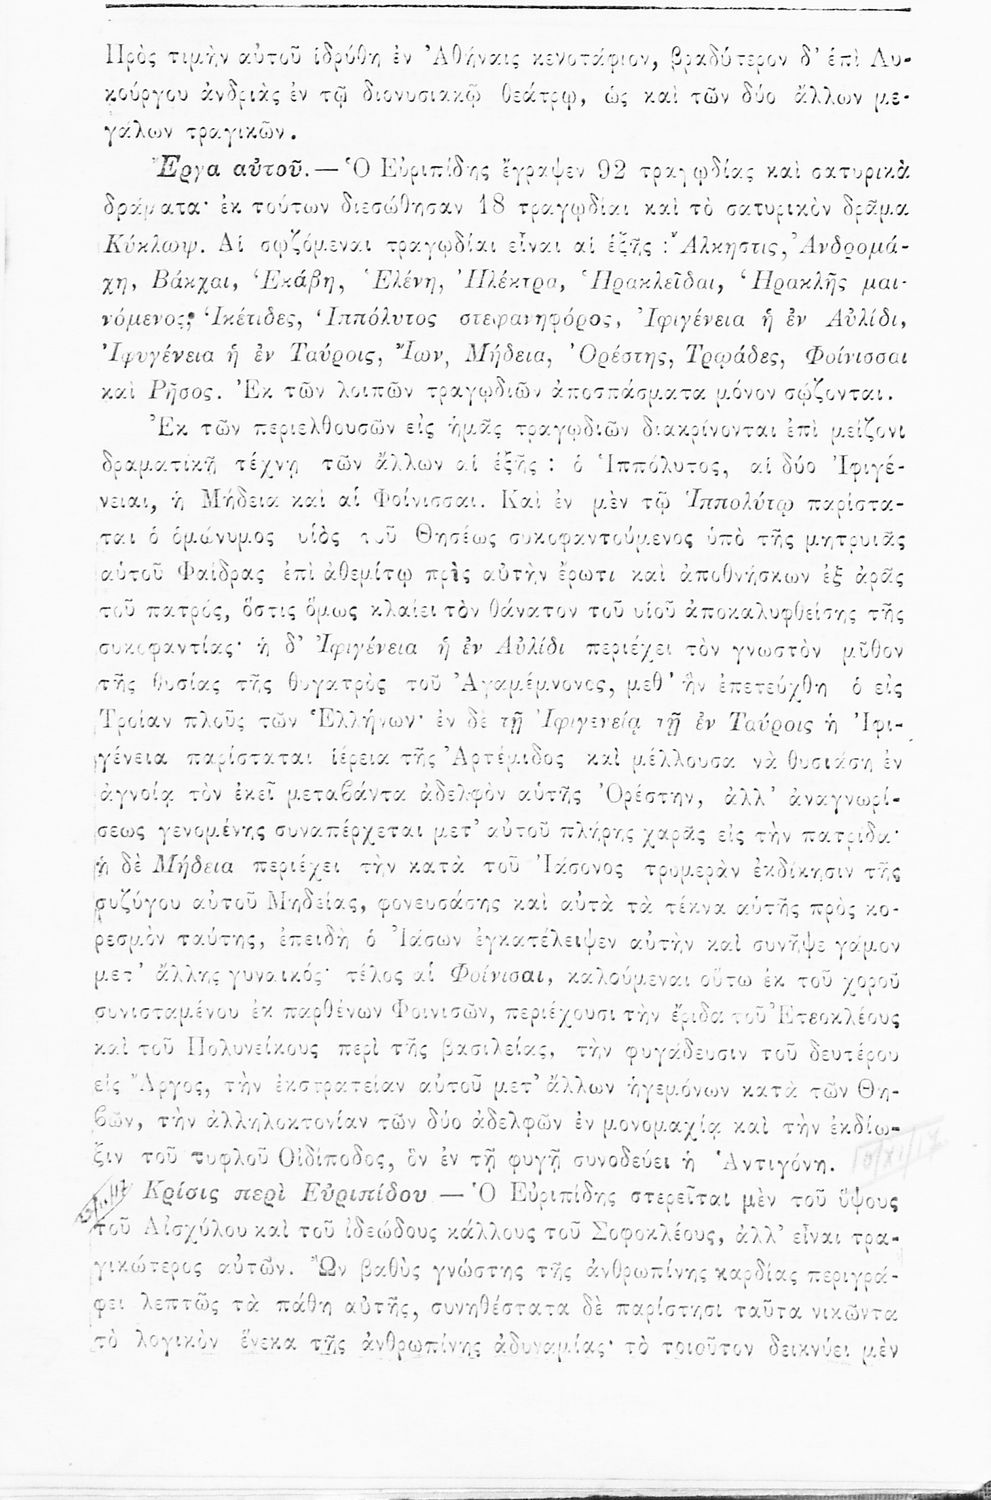 Πρὸς τιμὴν αὐτοῦ ἱδρύθη ἐν Ἀθήναις κενοτάφιον, βραδύτερον δ’ ἐπὶ Λυ-
κούργου ἀνδριὰς ἐν τῷ διονυσιακῷ θεάτρῳ, ὡς καὶ τῶν δύο ἄλλων με-
γάλων τραγικῶν.
Ἔργα αὐτοῦ.— Ὁ Εὐριπίδης ἔγραψεν 92 τραγῳδίας καὶ σατυρικὰ
δράματα· ἐκ τούτων διεσώθησαν 18 τραγῳδίαι καὶ τὸ σατυρικὸν δρᾶμα
Κύκλωψ. Αἱ σῳζόμεναι τραγῳδίαι εἶναι αἱ ἑξῆς : Ἄλκηστις, Ἀνδρομά-
χη, Βάκχαι, Ἑκάβη, Ἑλένη, Ἠλέκτρα, Ἡρακλεῖδαι, Ἡρακλῆς μαι-
νόμενος, Ἱκέτιδες, Ἱππόλυτος στεφανηφόρος, Ἰφιγένεια ἡ ἐν Αὐλίδι,
Ἰφυγένεια ἡ ἐν Ταύροις, Ἴων, Μήδεια, Ὀρέστης, Τρῳάδες, Φοίνισσαι
καὶ Ρῆσος. Ἐκ τῶν λοιπῶν τραγῳδιῶν ἀποσπάσματα μόνον σῴζονται.
Ἐκ τῶν περιελθουσῶν εἰς ἡμᾶς τραγῳδιῶν διακρίνονται ἐπὶ μείζονι
δραματικῇ τέχνῃ τῶν ἄλλων αἱ ἑξῆς : ὁ Ἱππόλυτος, αἱ δύο Ἰφιγέ-
νειαι, ἡ Μήδεια καὶ αἱ Φοίνισσαι. Καὶ ἐν μὲν τῷ Ἱππολύτῳ παρίστα-
ται ὁ ὁμώνυμος υἱὸς τοῦ Θησέως συκοφαντούμενος ὑπὸ τῆς μητρυιᾶς
αὑτοῦ Φαίδρας ἐπὶ ἀθεμίτῳ πρὸς αὐτὴν ἔρωτι καὶ ἀποθνήσκων ἐξ ἀρᾶς
τοῦ πατρός, ὅστις ὅμως κλαίει τὸν θάνατον τοῦ υἱοῦ ἀποκαλυφθείσης τῆς
συκοφαντίας· ἡ δ’ Ἰφιγένεια ἡ ἐν Αὐλίδι περιέχει τὸν γνωστὸν μῦθον
τῆς θυσίας τῆς θυγατρὸς τοῦ Ἀγαμέμνονος, μεθ’ ἣν ἐπετεύχθη ὁ εἰς
Τροίαν πλοῦς τῶν Ἑλλήνων· ἐν δὲ τῇ Ἰφιγενείᾳ τῇ ἐν Ταύροις ἡ Ἰφι-
γένεια παρίσταται ἱέρεια τῆς Ἀρτέμιδος καὶ μέλλουσα νὰ θυσιάσῃ ἐν
ἀγνοίᾳ τὸν ἐκεῖ μεταβάντα ἀδελφὸν αὑτῆς Ὀρέστην, ἀλλ’ ἀναγνωρί-
σεως γενομένης συναπέρχεται μετ’ αὐτοῦ πλήρης χαρᾶς εἰς τὴν πατρίδα·
ἡ δὲ Μήδεια περιέχει τὴν κατὰ τοῦ Ἰάσονος τρομερὰν ἐκδίκησιν τῆς
συζύγου αὐτοῦ Μηδείας, φονευσάσης καὶ αὐτὰ τὰ τέκνα αὑτῆς πρὸς κο-
ρεσμὸν ταύτης, ἐπειδὴ ὁ Ἰάσων ἐγκατέλειψεν αὐτὴν καὶ συνῆψε γάμον
μετ’ ἄλλης γυναικός· τέλος αἱ Φοίνισαι, καλούμεναι οὕτω ἐκ τοῦ χοροῦ
συνισταμένου ἐκ παρθένων Φοινισῶν, περιέχουσι τὴν ἔριδα τοῦ Ἐτεοκλέους
καὶ τοῦ Πολυνείκους περὶ τῆς βασιλείας, τὴν φυγάδευσιν τοῦ δευτέρου
εἰς Ἄργος, τὴν ἐκστρατείαν αὐτοῦ μετ’ ἄλλων ἡγεμόνων κατὰ τῶν Θη-
βῶν, τὴν ἀλληλοκτονίαν τῶν δύο ἀδελφῶν ἐν μονομαχίᾳ καὶ τὴν ἐκδίω-
ξιν τοῦ τυφλοῦ Οἰδίποδος, ὃν ἐν τῇ φυγῇ συνοδεύει ἡ Ἀντιγόνη.
Κρίσις περὶ Εὐριπίδου — Ὁ Εὐριπίδης στερεῖται μὲν τοῦ ὕψους
τοῦ Αἰσχύλου καὶ τοῦ ἰδεώδους κάλλους τοῦ Σοφοκλέους, ἀλλ’ εἶναι τρα-
γικώτερος αὐτῶν. Ὢν βαθὺς γνώστης τῆς ἀνθρωπίνης καρδίας περιγρά-
φει λεπτῶς τὰ πάθη αὐτῆς, συνηθέστατα δὲ παρίστησι ταῦτα νικῶντα
τὸ λογικὸν ἕνεκα τῆς ἀνθρωπίνης ἀδυναμίας· τὸ τοιοῦτον δεικνύει μὲν